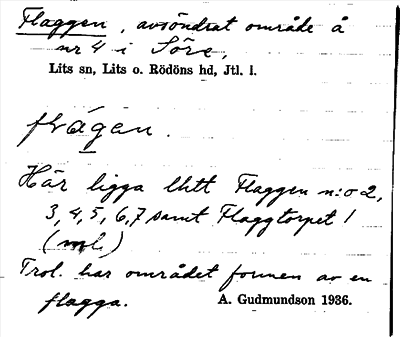 Flaggen, avsöndrat område å
nr 4 i Söre,
Lits sn, Lits o. Rödöns hd, Jtl. l.
flágen.
Här ligga lhtt Flaggen n:o 2,
3, 4, 5, 6, 7 samt Flaggtorpet 1
Trol. har området formen av en
flagga.
A. Gudmundson 1936.